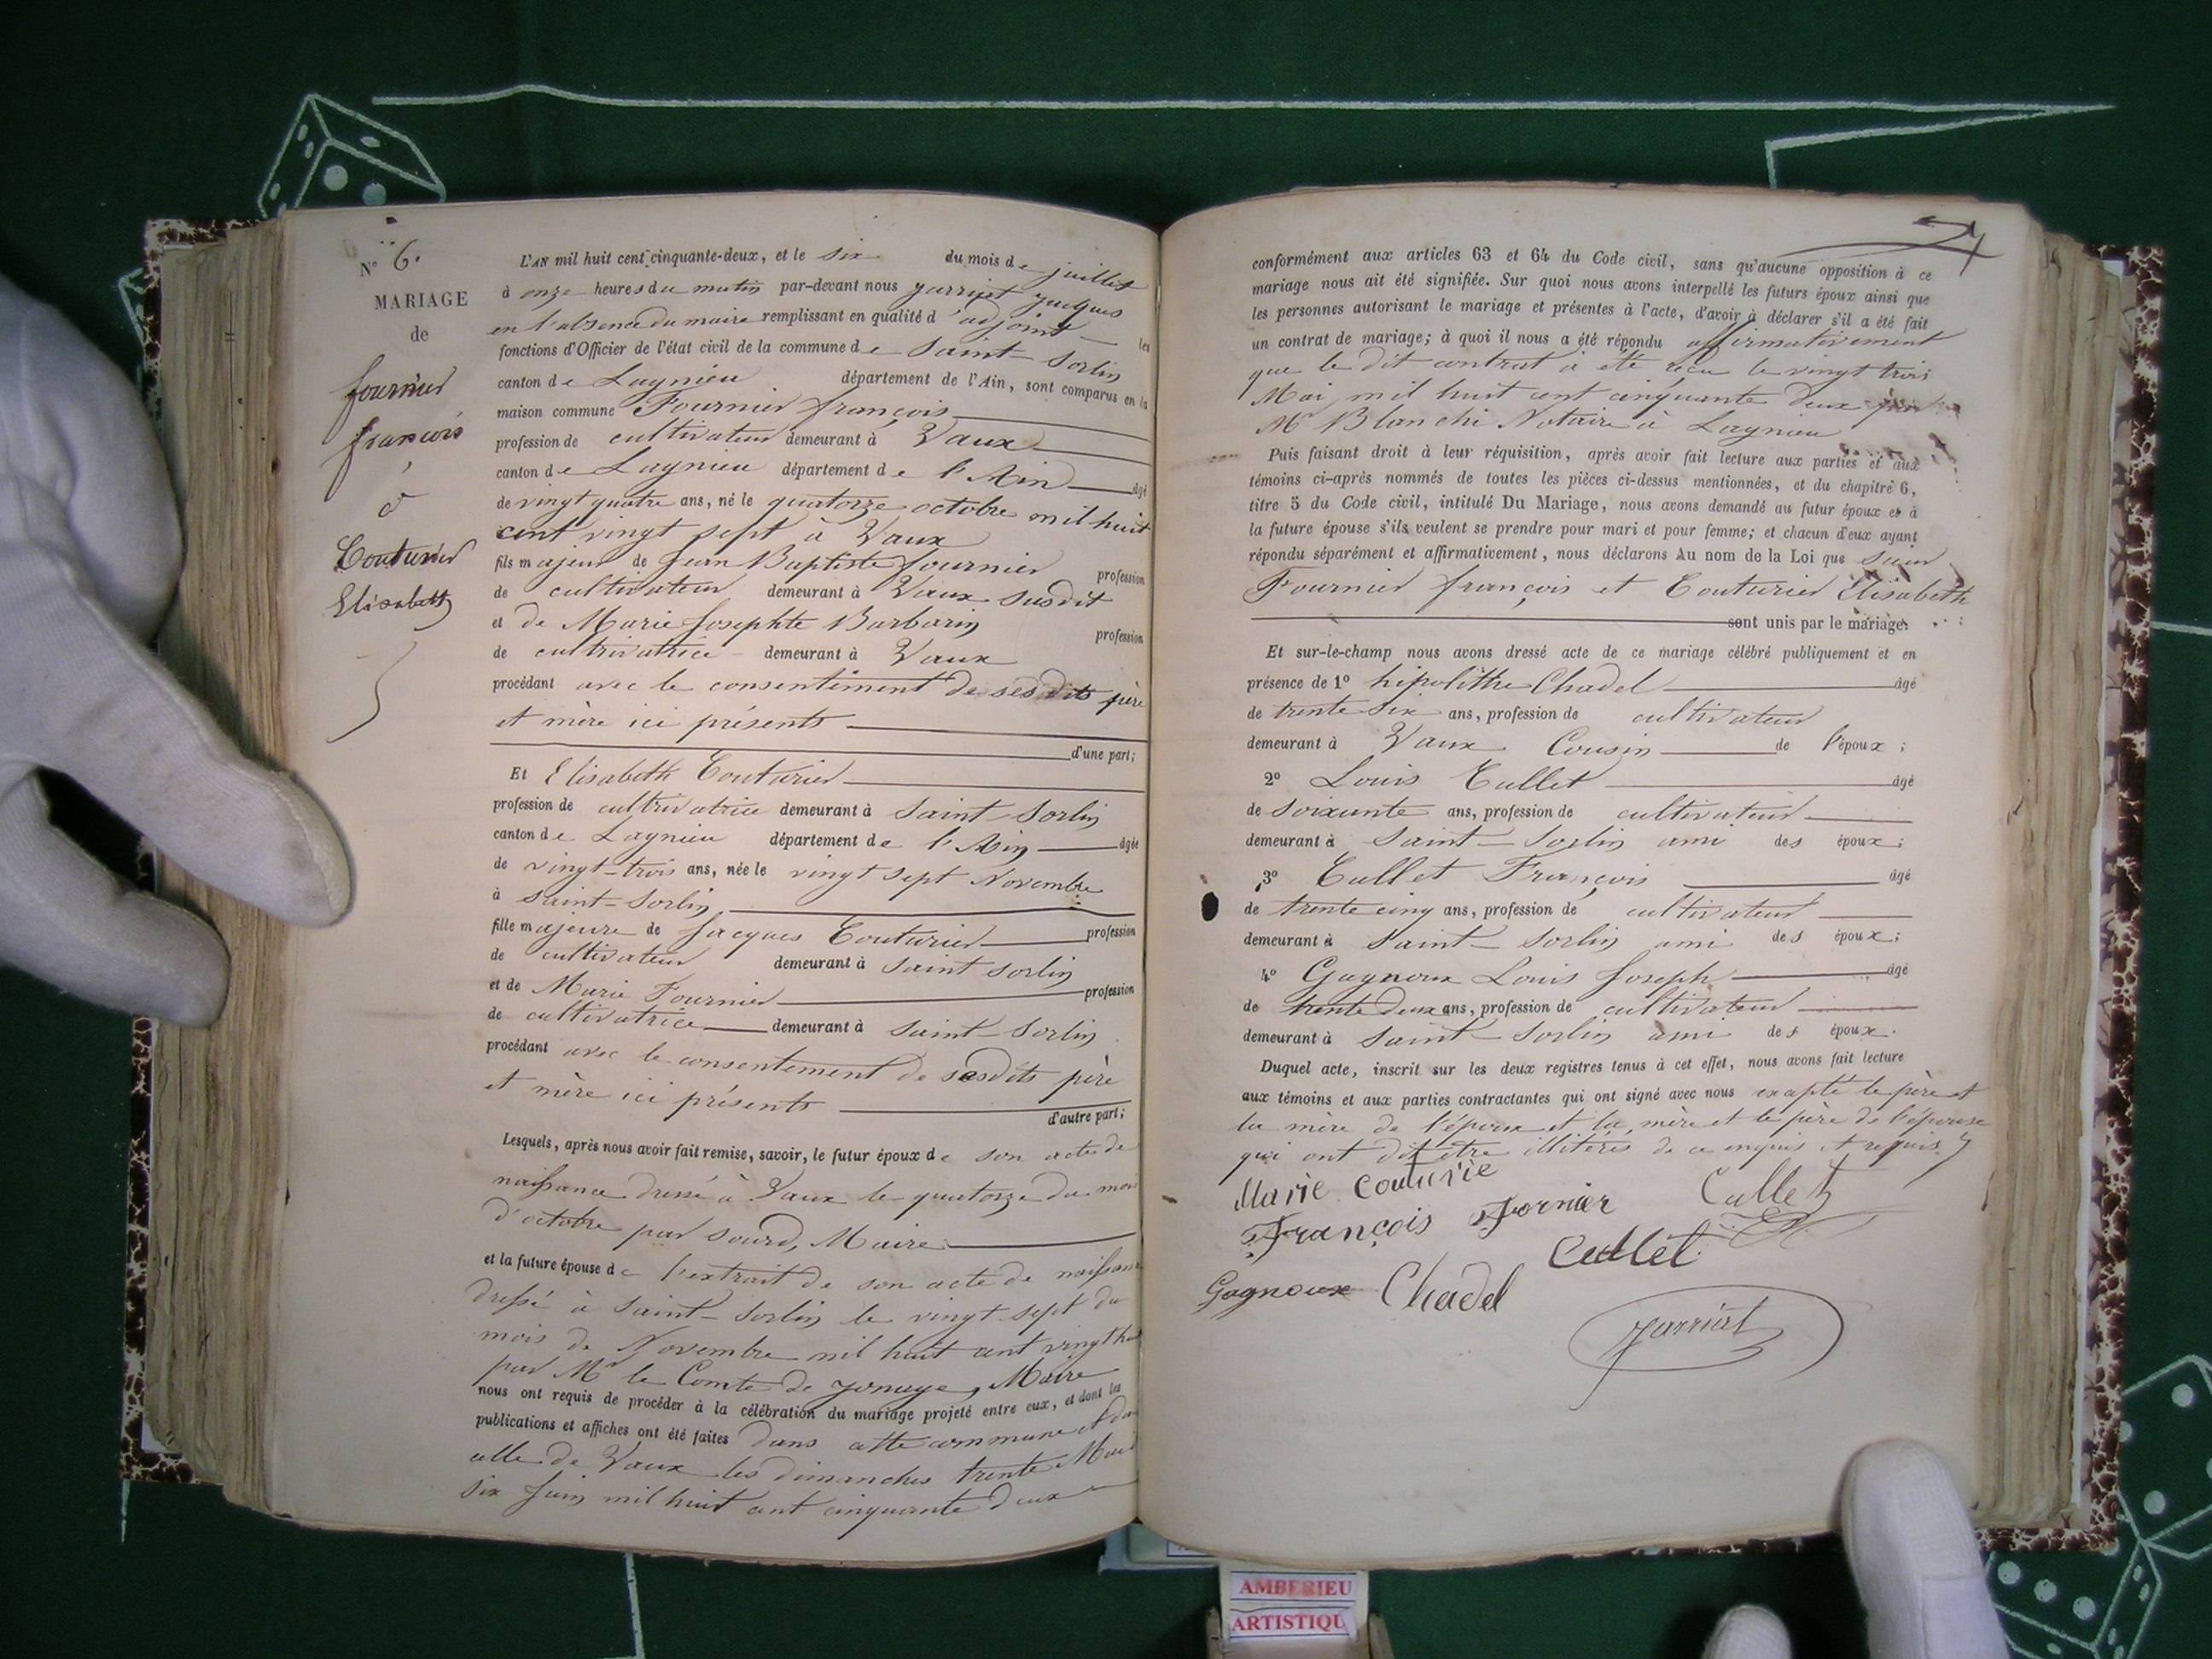 N° 6.
MARIAGE
de
fournier
françois
à
Couturier
Elisabeth
L'AN mil huit cent cinquante-deux, et le six du mois de juillet
à onze heures du matin par-devant nous jarriet jacques
en l'absence du maire remplissant en qualité d'adjoint les
fonctions d'Officier de l'état civil de la commune de Saint-Sorlin
canton de Lagnieu département de l'Ain, sont comparus en la
maison commune Fournier françois
profession de cultivateur demeurant à Vaux
canton de Lagnieu département de l'Ain âgé
de vingt quatre ans, né le quatorze octobre mil huit
cent vingt sept à Vaux
fils majeur de Jean Baptiste fournier profession
de cultivateur demeurant à Vaux susdit
et de Marie Josephte Barbarin profession
de cultivatrice demeurant à Vaux
procédant avec le consentement de ses dits père
et mère ici présents
d'une part;
Et Elisabeth Couturier
profession de cultivatrice demeurant à Saint-Sorlin
canton de Lagnieu département de l'Ain âgée
de vingt-trois ans, née le vingt sept Novembre
à Saint-Sorlin
fille majeure de Jacques Couturier profession
de cultivateur demeurant à Saint Sorlin
et de Marie Fournier profession
de cultivatrice demeurant à Saint-Sorlin
procédant avec le consentement de sesdits père
et mère ici présents
d'autre part;
Lesquels, après nous avoir fait remise, savoir, le futur époux de son acte de
naissance dressé à Vaux le quatorze du mois
d'octobre par Sourd, Maire
et la future épouse de l'extrait de son acte de naissance
dressé à Saint-Sorlin le vingt sept du
mois de Novembre mil huit cent vingt huit
par Mr le Comte de Maire
nous ont requis de procéder à la célébration du mariage projeté entre eux, et dont les
publications et affiches ont été faites dans cette commune et dans
celle de Vaux les dimanches trente Mai et
six Juin mil huit cent cinquante deux
conformément aux articles 63 et 64 du Code civil, sans qu'aucune opposition à ce
mariage nous ait été signifiée. Sur quoi nous avons interpellé les futurs époux ainsi que
les personnes autorisant le mariage et présentes à l'acte, d'avoir à déclarer s'il a été fait
un contrat de mariage; à quoi il nous a été répondu affirmativement
que le dit contrat a été reçu le vingt trois
Mai mil huit cent cinquante deux par
Me Blanchi Notaire à Lagnieu
Puis faisant droit à leur réquisition, après avoir fait lecture aux parties et aux
témoins ci-après nommés de toutes les pièces ci-dessus mentionnées, et du chapitre 6,
titre 5 du Code civil, intitulé Du Mariage, nous avons demandé au futur époux et à
la future épouse s'ils veulent se prendre pour mari et pour femme; et chacun d'eux ayant
répondu séparément et affirmativement, nous déclarons Au nom de la Loi que
Fournier françois et Couturier Elisabeth
sont unis par le mariage.
Et sur-le-champ nous avons dressé acte de ce mariage célébré publiquement et en
présence de 1° hipolithe Chadel âgé
de trente six ans, profession de cultivateur
demeurant à Vaux Cousin de l'époux;
2° Louis Cullet âgé
de soixante ans, profession de cultivateur
demeurant à Saint-Sorlin ami des époux;
3° Cullet François âgé
de trente cinq ans, profession de cultivateur
demeurant à Saint-Sorlin ami des époux;
4° Gagnoux Louis Joseph âgé
de trente deux ans, profession de cultivateur
demeurant à Saint-Sorlin ami des époux.
Duquel acte, inscrit sur les deux registres tenus à cet effet, nous avons fait lecture
aux témoins et aux parties contractantes qui ont signé avec nous excepté le père et
la mère de l'époux et la mère et le père de l'épouse
qui ont dit être illitérés de ce enquis et requis.
Marie Couturie
François Fornier Cullet
Cullet
Gagnoux Chadel
Jarriet
AMBERIEU
ARTISTIQU